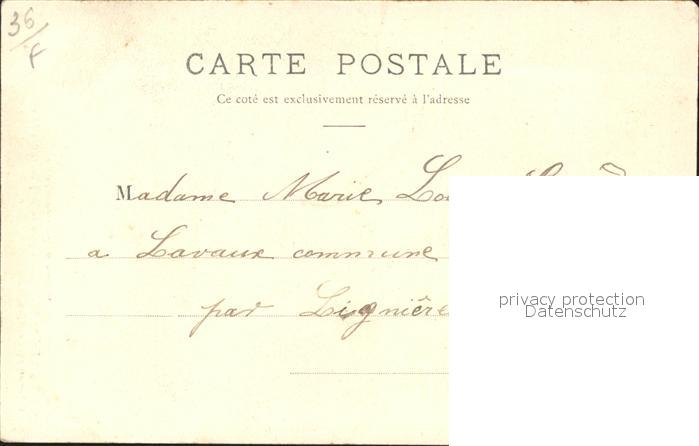 36/F
CARTE POSTALE
Ce coté est exclusivement réservé à l'adresse
Madame Marie
a Lavaux commune
privacy protection
par Lignière
Datenschutz